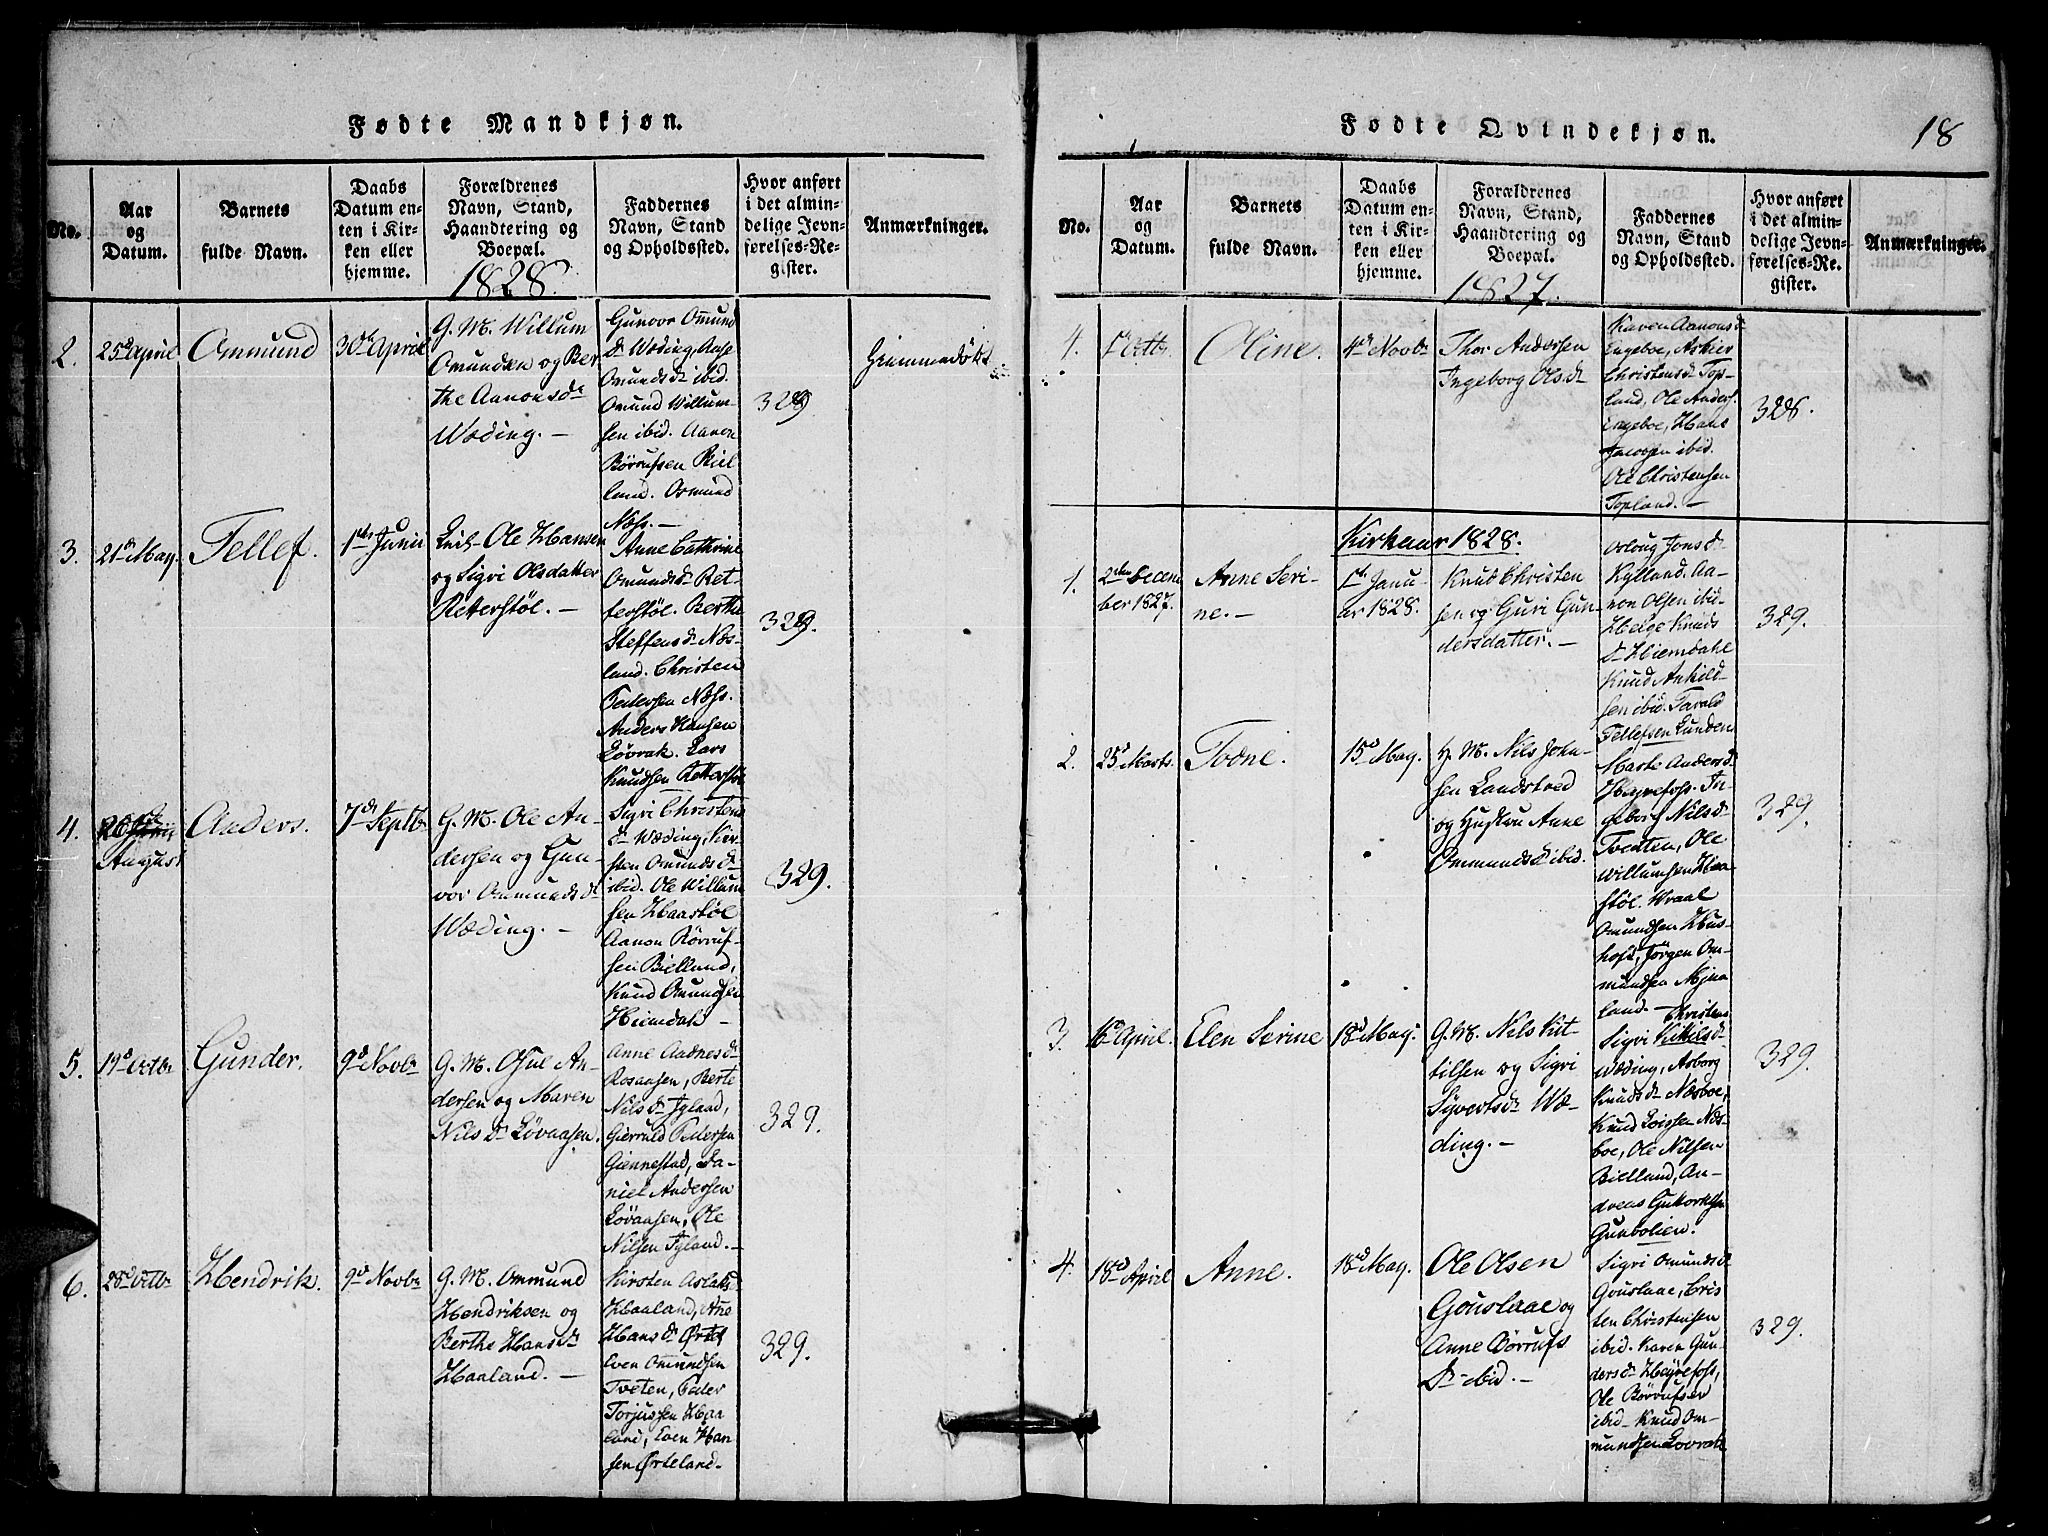 Fødte Mandkjøn.
No.
Aar
og
Datum.
Barnets
fulde Navn.
Daabs
Datum en-
ten i Kir-
ken eller
hjemme.
Forældrenes
Navn, Stand,
Haandtering og
Boepæl.
1828.
Faddernes
Navn, Stand
og Opholdssted.
Hvor anført
i det almin-
delige Jevn-
førelses-Re-
gister.
Anmærkninger.
2.
25d April
Ommund
30th April
G. M. Willum
Omundsen og Ber-
the Aanonsdr
Wæding. -
Gunvor Omund
dr Wæding, Aase
Omundsdr ibid.
Omund Willum-
sen ibid. Aanon
Børrufsen Biel-
land. Osmund
Næss. -
329
Hiemmedøbt
3.
21d May.
Tellef.
1ste Junii
Ole Hansen
og Sigri Olsdatter
Retterstøl. -
Anne Cathrine
Omundsdr Ret-
terstøl. Berthe
Steffensdr Næs-
land. Christen
Pedersen Næss.
Anders Hansen
Lövrak. Lars
Knudsen Retterstøl
329.
4.
August
Anders.
7d Septbr
G. M. Ole An-
dersen og Gun-
vor Ommundsdr
Wæding. -
Sigri Christens
dr Wæding, Kir-
sten Omundsdr
ibid. Ole Willum
sen Haastøl
Aanon Børruf-
sen Bielland,
Knud Omundsen
Hiemdal -
329.
5.
19d Octbr
Gunder.
9d Novbr
G. M. Osul An-
dersen og Maren
Nilsdr Løvaasen.
Anne Aadnesdr
Rosaasen, Berte
Nilsdr Igland,
Gierruld Pedersen
Giennestad, Da-
niel Andersen
Løvaasen, Ole
Nilsen Igland. -
329.
6.
28d Octbr
Hendrik.
9d Novbr
G. M. Ommund
Hendriksen og
Berthe Hansdr
Haaland. -
Kirsten Aslaksdr
Haaland, Ane
Hansdr
Even Omundsen
Tveten, Peder
Torjussen Haa
land, Even Han
sen Ørteland.
329.
Fødte Qvindekjøn.
18
No.
Aar
og
Datum.
Barnets
fulde Navn.
Daabs
Datum en-
ten i Kir-
ken eller
hjemme.
Forældrenes
Navn, Stand,
Haandtering og
Boepæl.
1827.
Faddernes
Navn, Stand
og Opholdssted.
Hvor anført
i det almin-
delige Jevn-
førelses-Re-
gister.
Anmærkninger.
4.
Octbr
Oline.
4de Novbr
Thor Andersen
Ingeborg Olsdr
Karen Aanonsdr
Engeboe, Askier
Christensdr Top-
land, Ole Anders.
Engeboe, Hans
Jacobsen ibid.
Ole Christensen
Topland. -
328.
Kirkeaar 1828.
1.
2den Decem
ber 1827.
Anne Seri-
ne. -
1st Janu-
ar 1828.
Knud Christen
sen og Guri Gun-
dersdatter. -
Oloug Jonsdr
Kylland. Aa-
non Olsen ibid.
Helge Knuds
dr Hiemdahl
Knud Askild-
sen ibid. Tarald
Tellefsen Lunden
329.
2.
25d Marts.
Todne.
15d May.
G. M. Nils John-
sen Landstved
og Hustru Anne
Ommundsdr ibid.
Marte Andersdr
Høyrefoss. In-
geborg Nilsdr
Tveiten, Ole
Willumsen Haa
støl. Wraal
Omundsen Hus-
hofs, Jørgen Om-
mundsen Mjua
land. -
329.
3.
16d April.
Elen Serine
18d May.
G. M. Nils Kit-
tilsen og Sigri
Syvertsdr Wæ-
ding. -
Christens
Sigri Kittilsdr
Wæding, Asborg
Knudsdr Næsboe,
Knud Loissen Næs-
boe, Ole Nilsen
Bielland, An-
dreas Guttormsen
Gunbolien.
329.
4.
18d April
Anne.
18d May.
Ole Olsen
Gouslaae og
Anne Børrufs
dr ibid. -
Sigri Omundsdr
Gouslaae, Cris
ten Christensen
ibid. Karen Gun-
dersdr Høyrefoss,
Ole Børrufsen
ibid - Knud Om-
mundsen Lovrak
329.